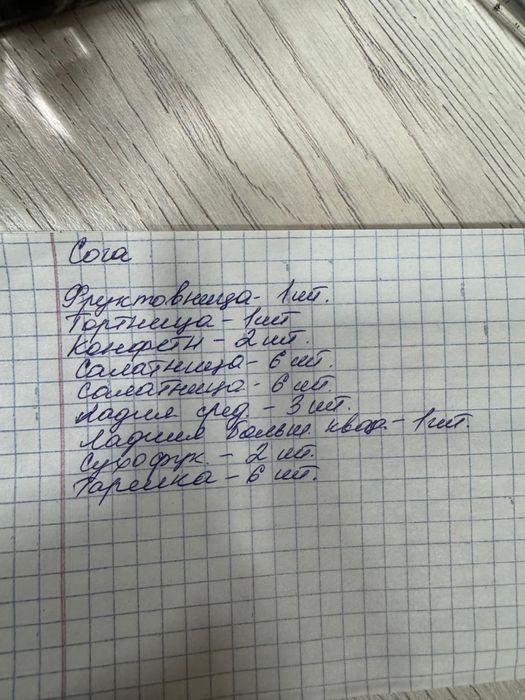 Сога
Фруктовница - 1 шт.
Тортница - 1 шт
Конфетн - 2 шт.
Салатница - 6 шт.
Салатница - 6 шт.
Ладия сред. - 3 шт.
Ладия больш квад. - 1 шт.
Сухофрук - 2 шт.
Тарелка - 6 шт.